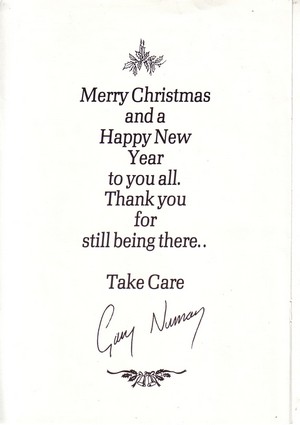 Merry Christmas
and a
Happy New
Year
to you all.
Thank you
for
still being there..
Take Care
Gary Numan